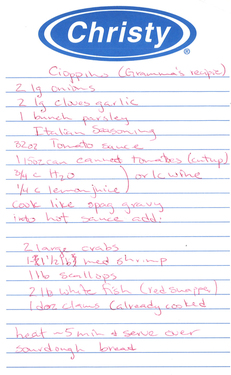 Christy®
Cioppino (Gramma's recipe)
2 lg onions
2 lg cloves garlic
1 bunch parsley
Italian Seasoning
32oz Tomato sauce
1 15oz can canned tomatoes (cut up)
3/4 c H2O ) or 1c wine
1/4 c lemon juice
Cook like spag gravy
into hot sauce add:
2 large crabs
1 1/2 lb med shrimp
1 lb scallops
2 lb white fish (red snapper)
1 doz clams (already cooked
heat ~5 min & serve over
sourdough bread